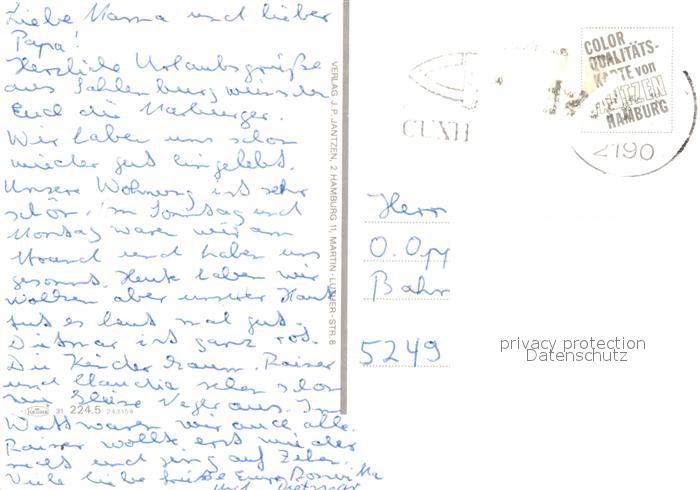 Liebe Mama und lieber
Papa!
Herzliche Urlaubsgrüße
aus Sahlenburg wünschen
Euch die Marburger.
Wir haben uns schon
wieder gut eingelebt.
Unsere Wohnung ist sehr
schön. Am Sonntag und
Montag waren wir am
Strand und haben uns
gesonnt. Heute haben wir
Wolken aber unserer Haut
tut es laut mal gut.
Dietmar ist ganz rot.
Die Kinder braun. Rainer
und Claudia sehen schon
wie kleine Neger aus. Im
Watt waren wir auch alle.
Rainer wollte erst wieder
nicht und ging auf Zehen.
Viele liebe Grüße Eure
und Dietmar
VERLAG J. P. JANTZEN, 2 HAMBURG 11, MARTIN-LUTHER-STR. 8
31 224.5
COLOR
QUALITÄTS-
KARTE von
JANTZEN
HAMBURG
CUXH
2190
Herr
O. Opp
Bahn
5249
privacy protection
Datenschutz